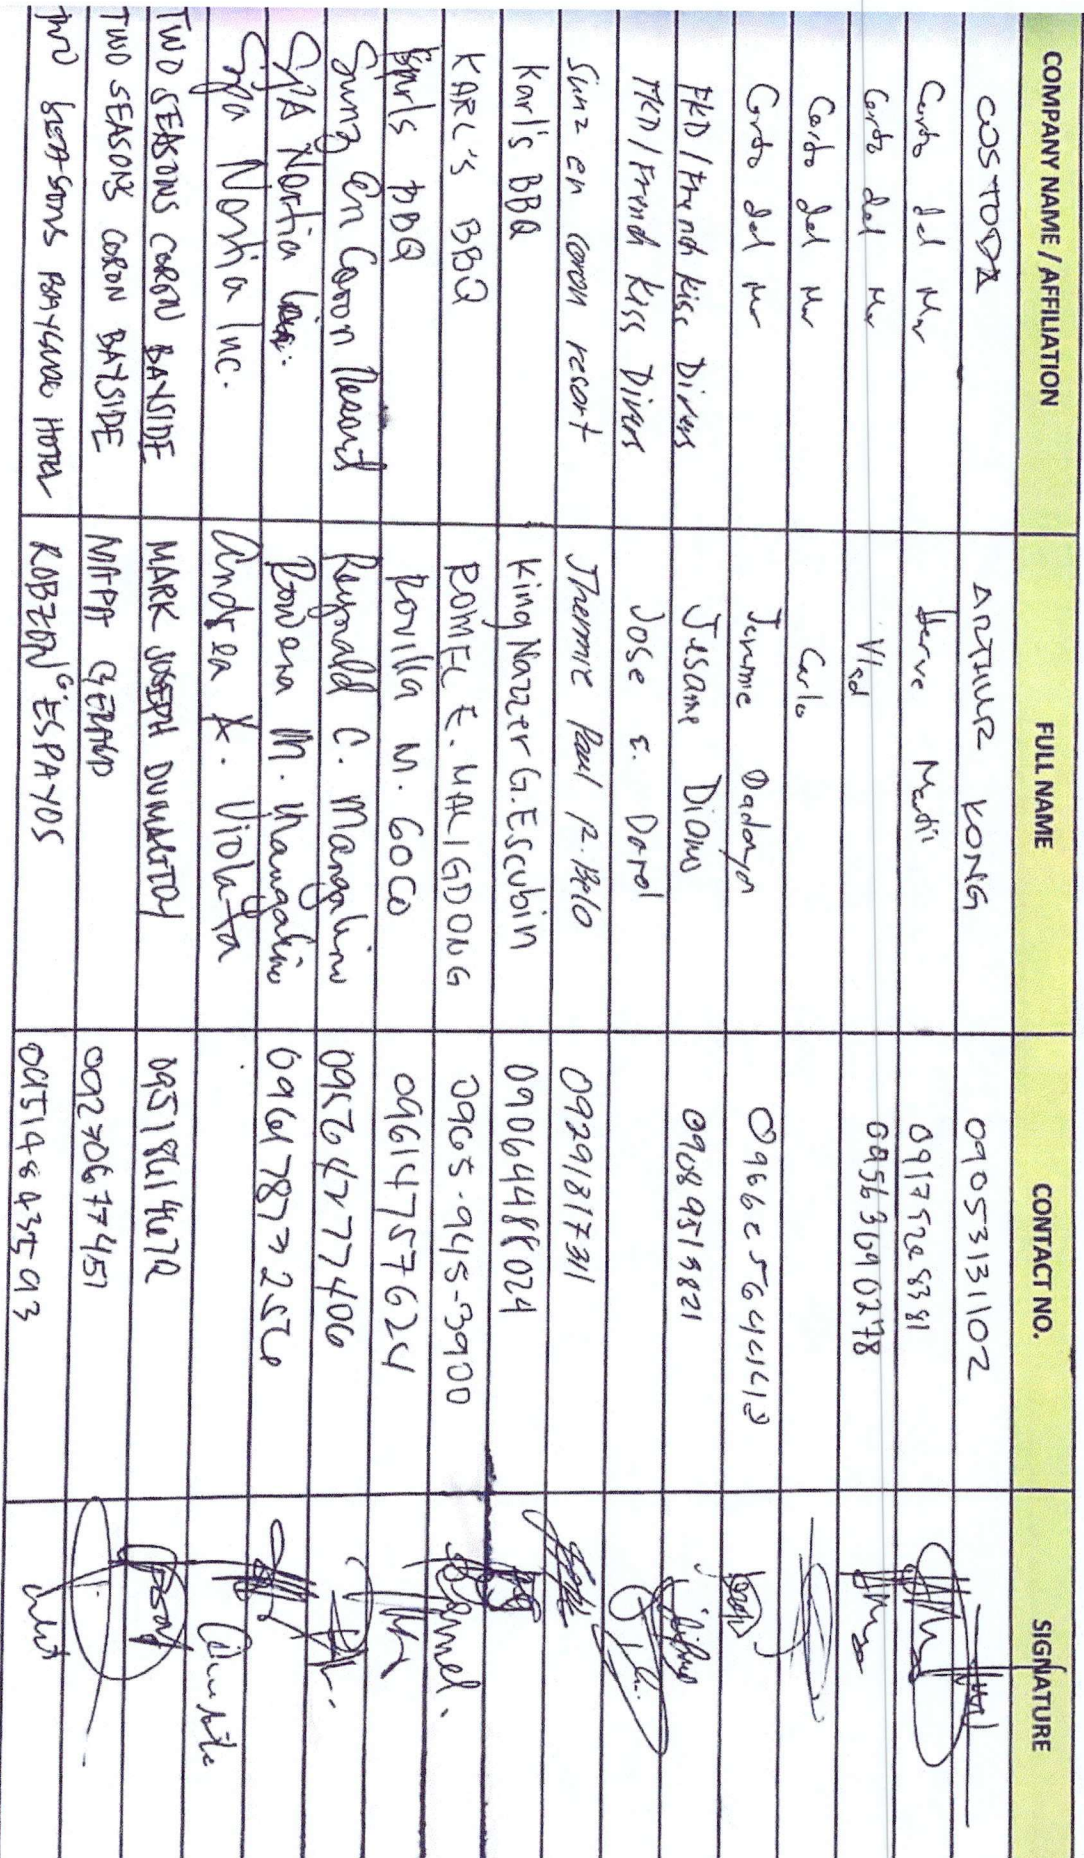 COMPANY NAME / AFFILIATION FULL NAME CONTACT NO. SIGNATURE
COSTODA ARTHUR KONG 09053131102
Corto del Mar Herve Martin 09175288381
Corto del Mar Vlad 09563690278
Corto del Mar Carlo
Corto del Mar Jeromie Dadayo
FKD / French Kiss Divers Jesame Diano 09089513821
FKD / French Kiss Divers Jose E. Darol
Sunz en coron resort Jhermie Paul P. Belo 09291817311
Karl's BBQ King Nazzer G. Escubin 09064488024
KARL'S BBQ ROMEL E. MALIGDONG 0965-945-3900
Karls BBQ Rovilla M. GOCO 09614757624
Sunz En Coron Resort Reynald C. Mangalino 09564277406
SPA Nostia Inc. Rowena M. Mangalino 09667877256
Spa Nostia Inc. Andrea X. Violata
TWO SEASONS CORON BAYSIDE MARK JOSEPH DUMAGTOY 09518614672
TWO SEASONS CORON BAYSIDE MAPA GERALD 09270677451
TWO SEASONS BAYSIDE HOTEL ROBZON G. ESPAYOS 0915148435913